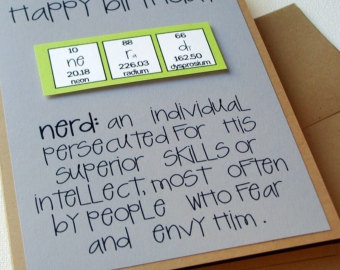 Happy birthday
10 88 66
ne ra dy
20.18 226.03 162.50
neon radium dysprosium
nerd: an individual
persecuted for his
superior skills or
intellect, most often
by people who fear
and envy him.